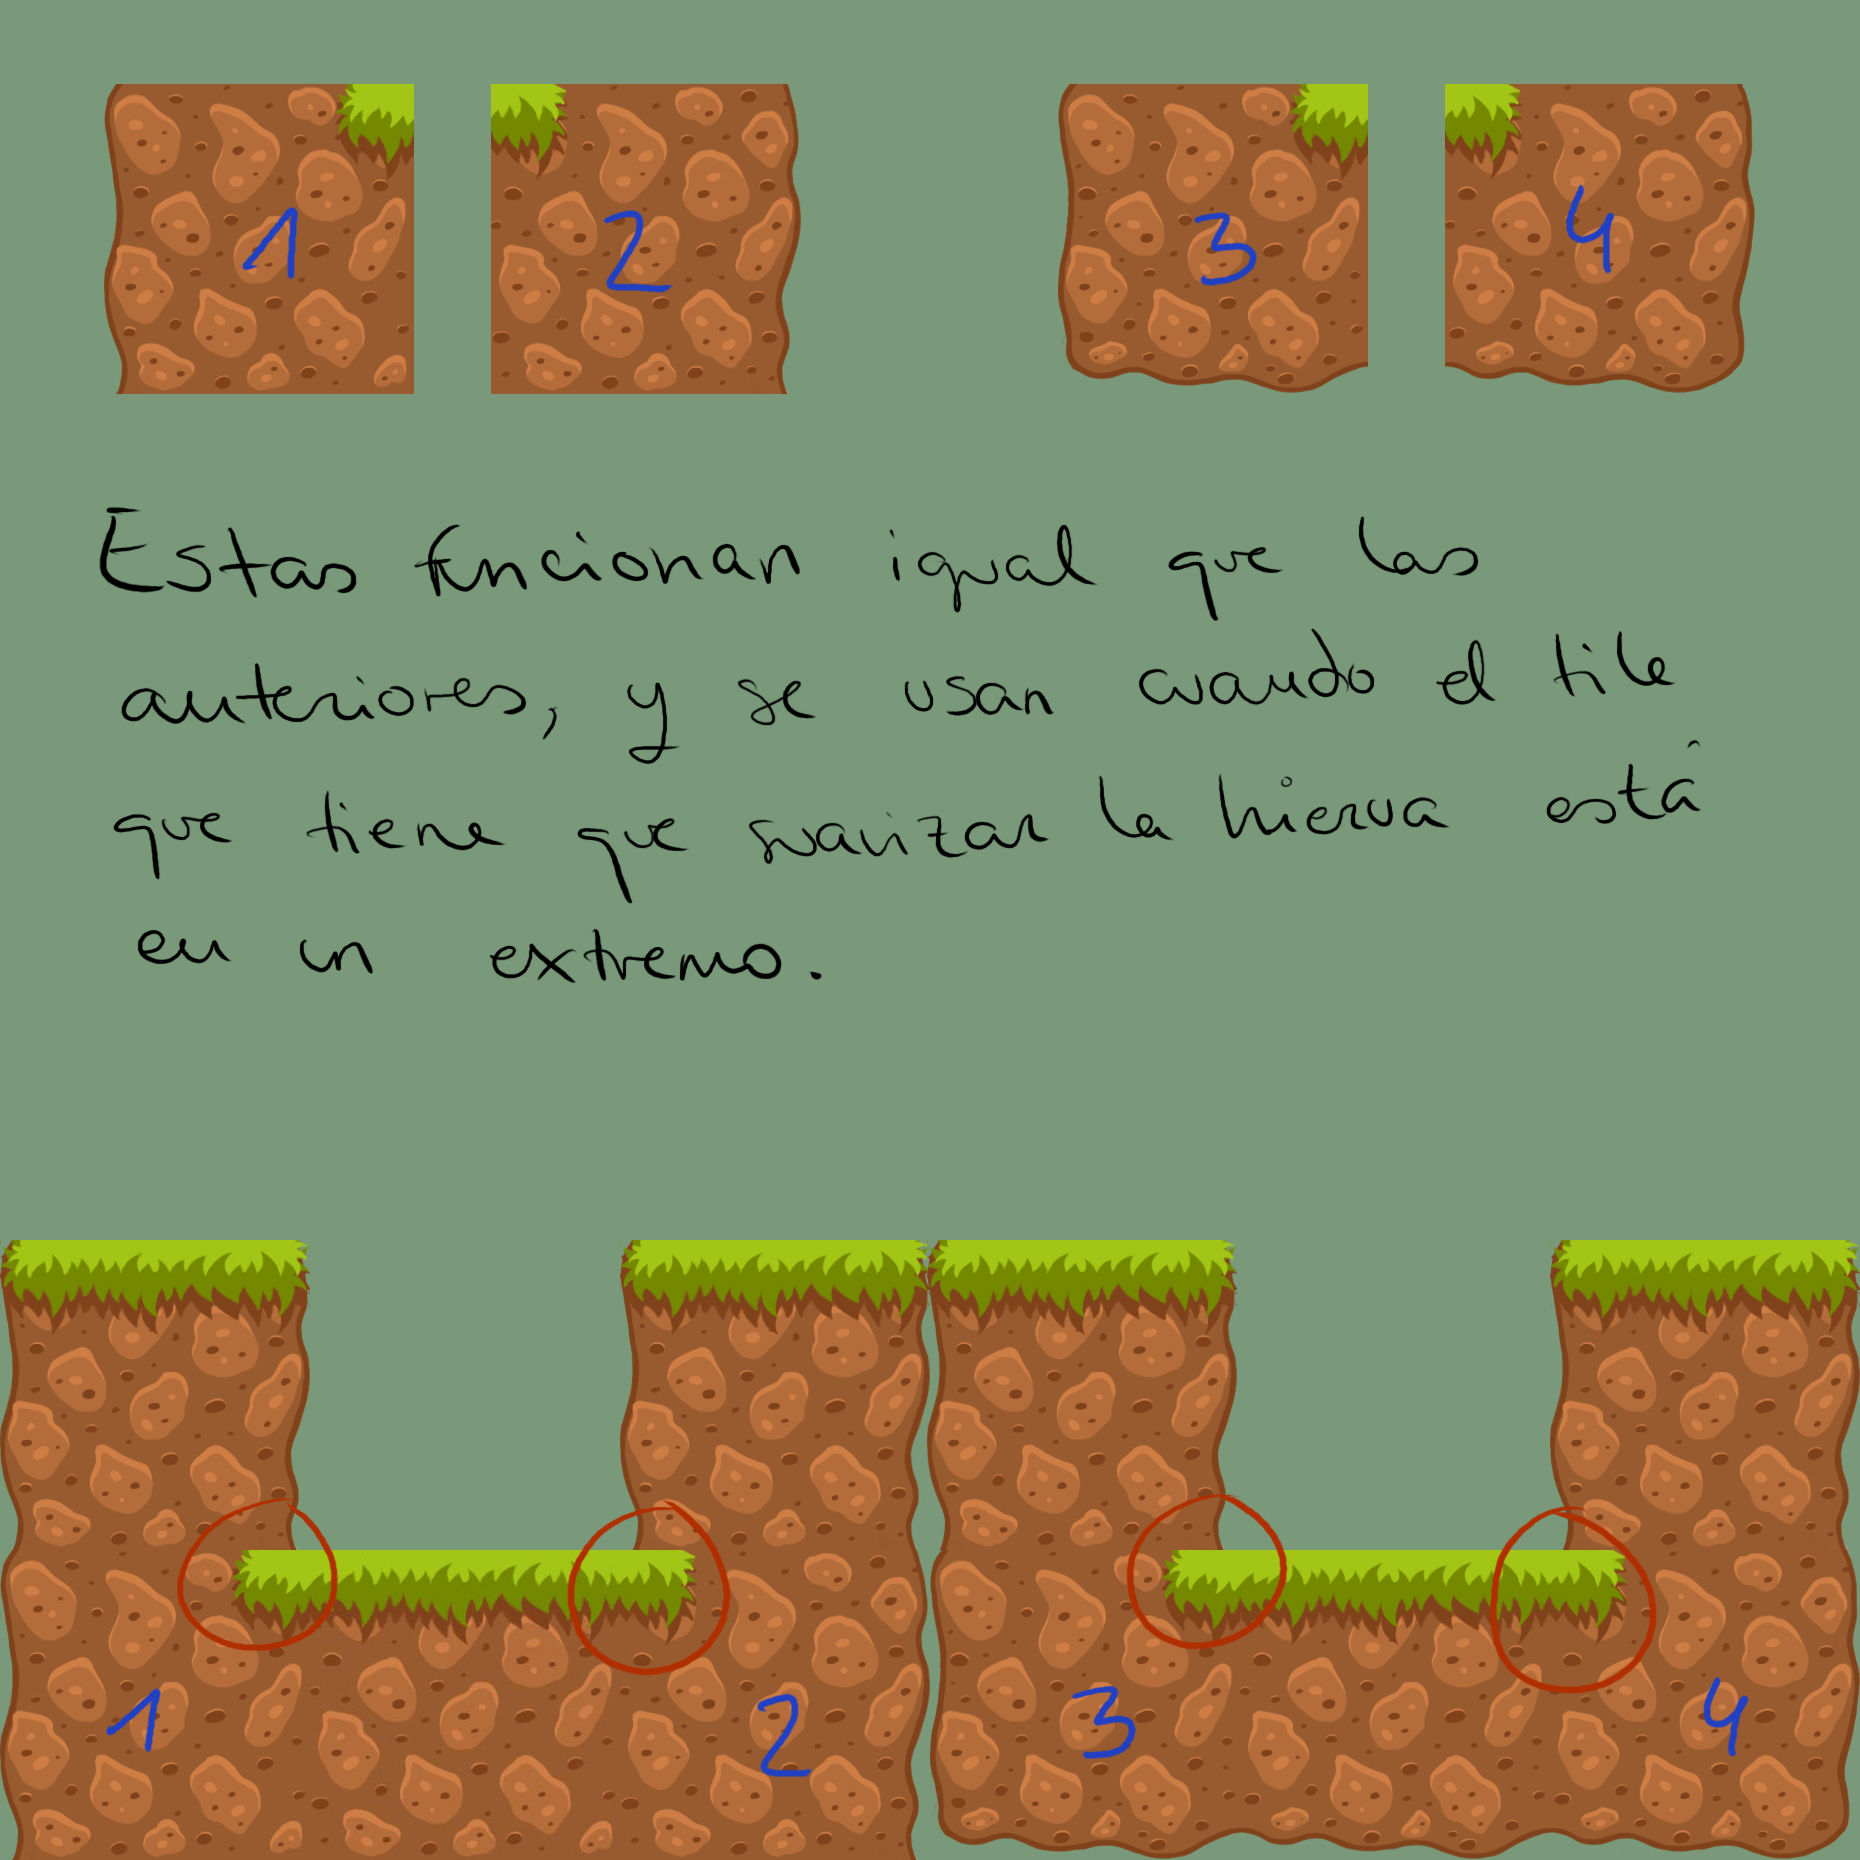 1 2 3 4
Estas funcionan igual que las
anteriores, y se usan cuando el tile
que tiene que suavizar la hierva está
en un extremo.
1 2 3 4